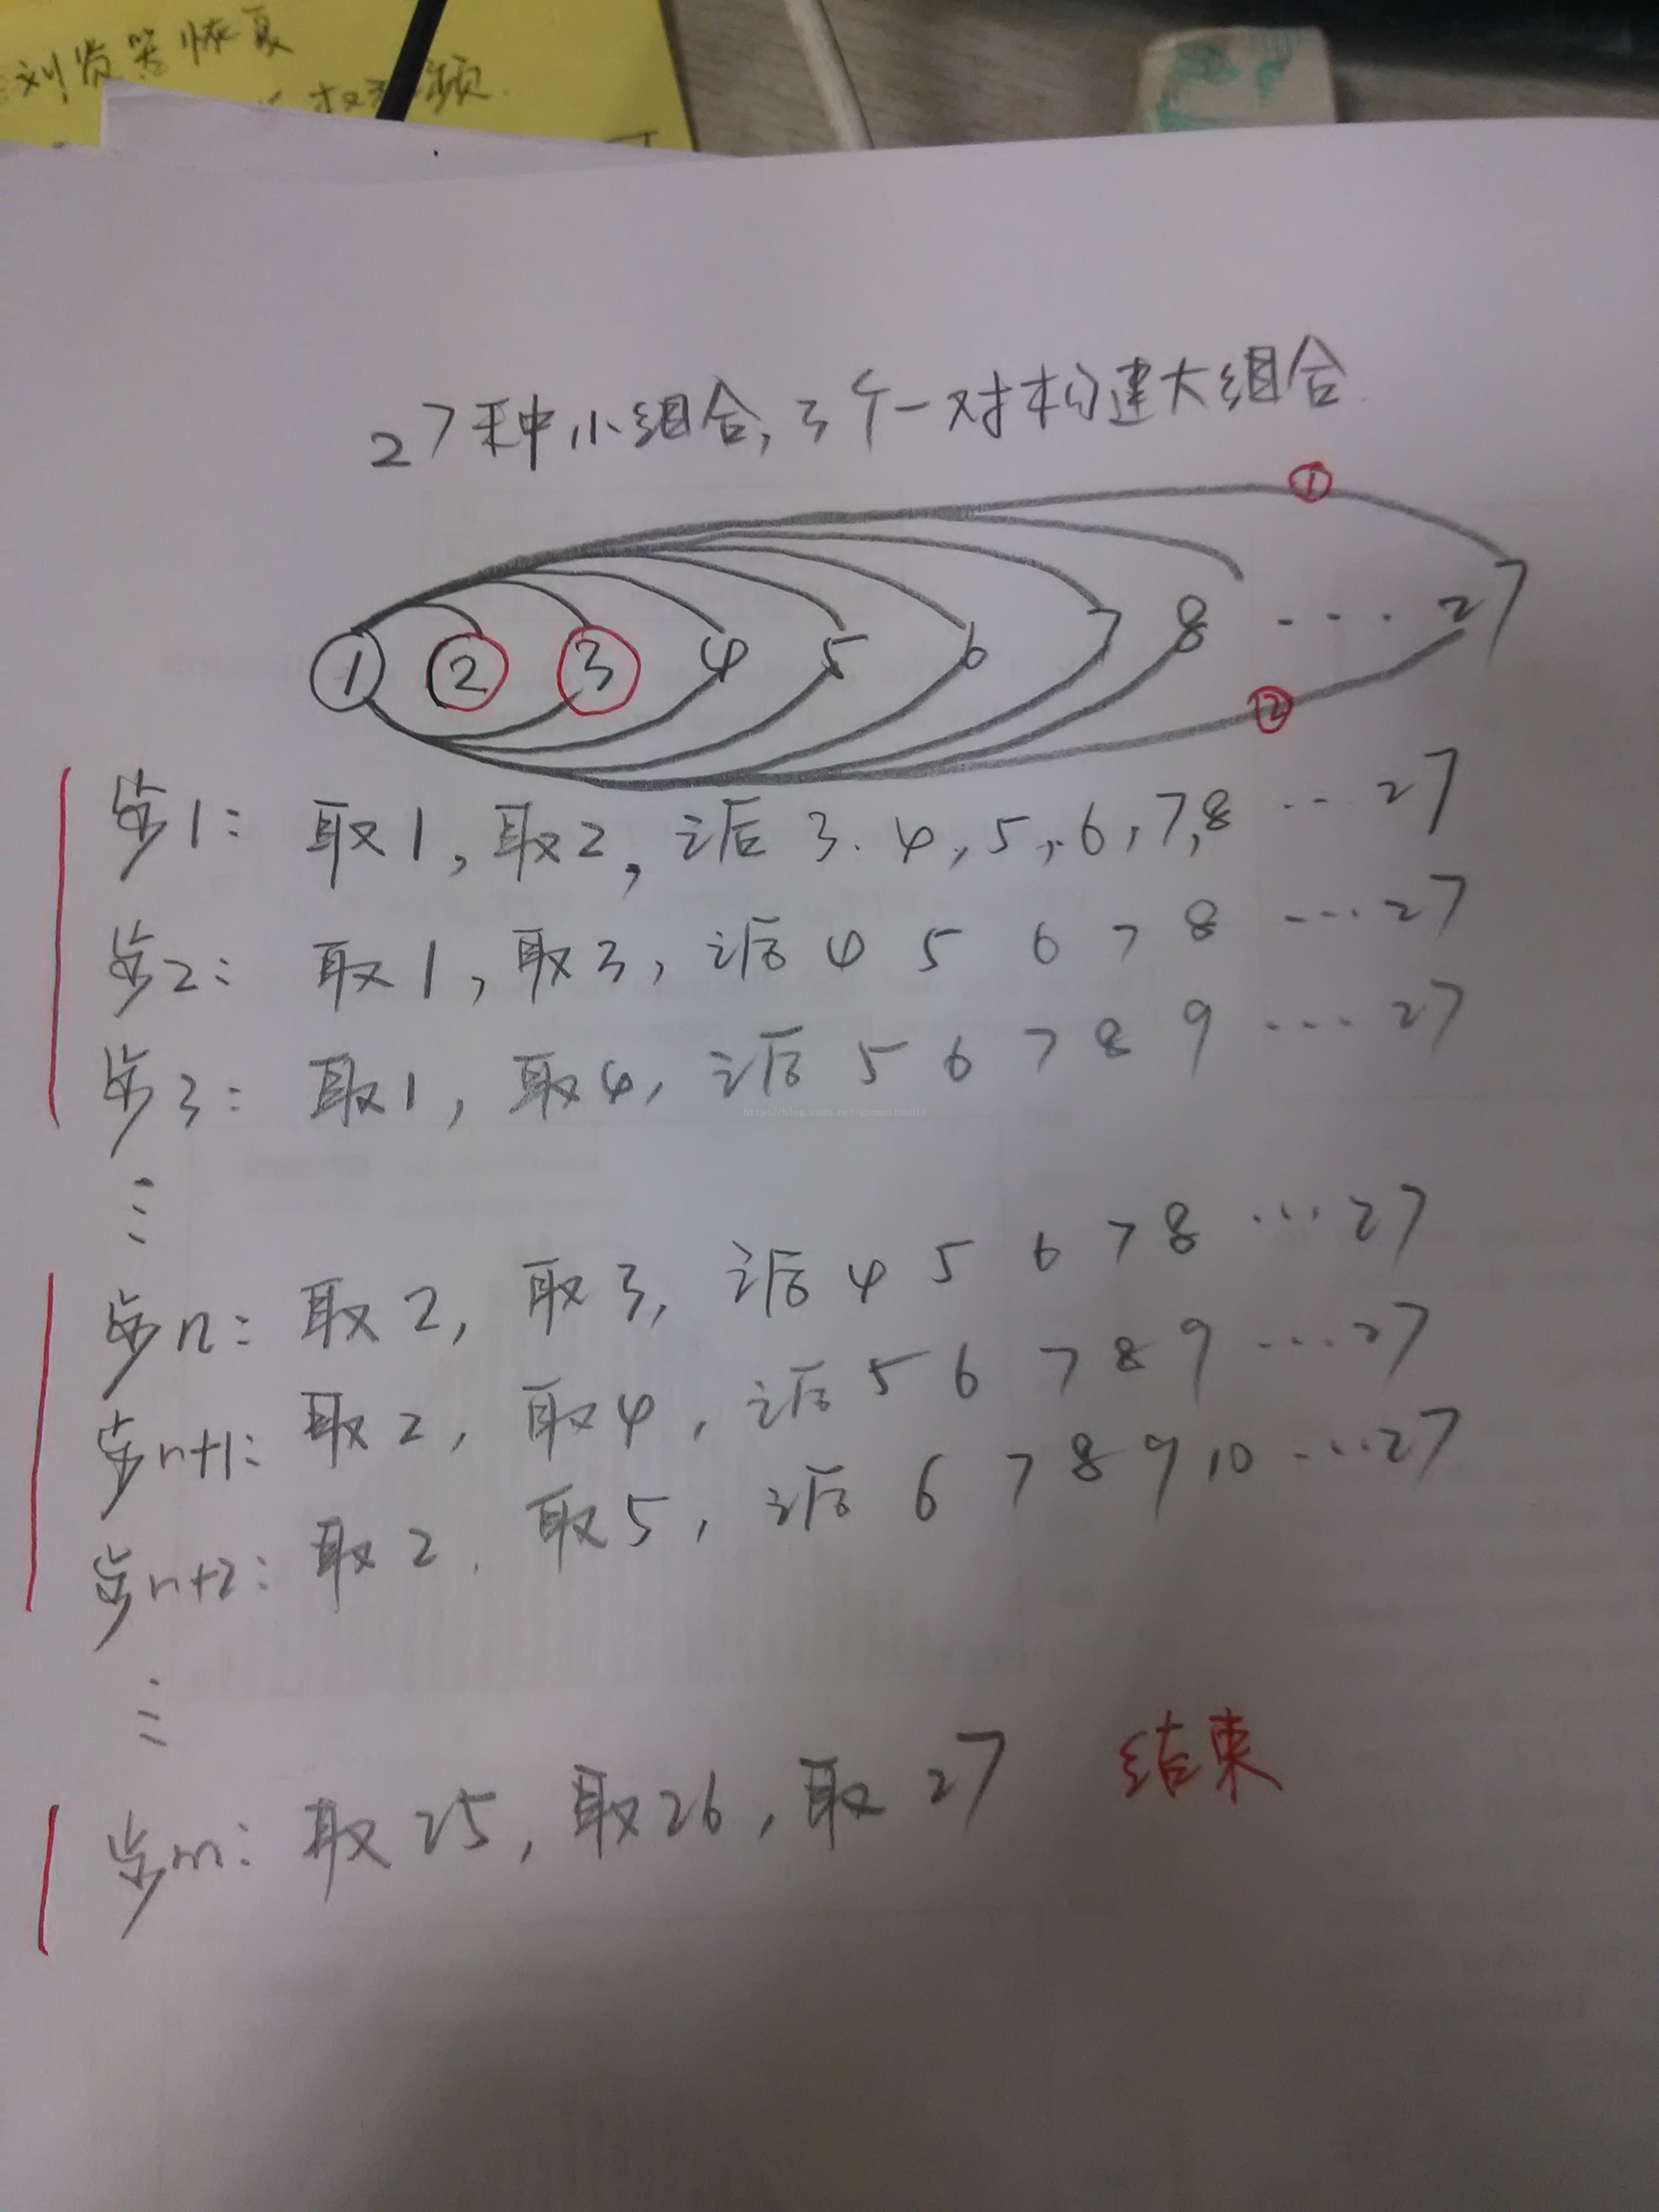 浏览器恢复
27种小组合,3个一对构建大组合.
①
① ② ③ 4 5 6 7 8 .... 27
②
步1: 取1, 取2, 之后 3. 4, 5, 6, 7, 8 ... 27
步2: 取1, 取3, 之后 4 5 6 7 8 .... 27
步3: 取1, 取4, 之后 5 6 7 8 9 .... 27
http://blog.csdn.net/guomutian911
步n: 取2, 取3, 之后 4 5 6 7 8 ... 27
步n+1: 取2, 取4, 之后 5 6 7 8 9 .... 27
步n+2: 取2. 取5, 之后 6 7 8 9 10 .... 27
步m: 取25, 取26, 取27 结束